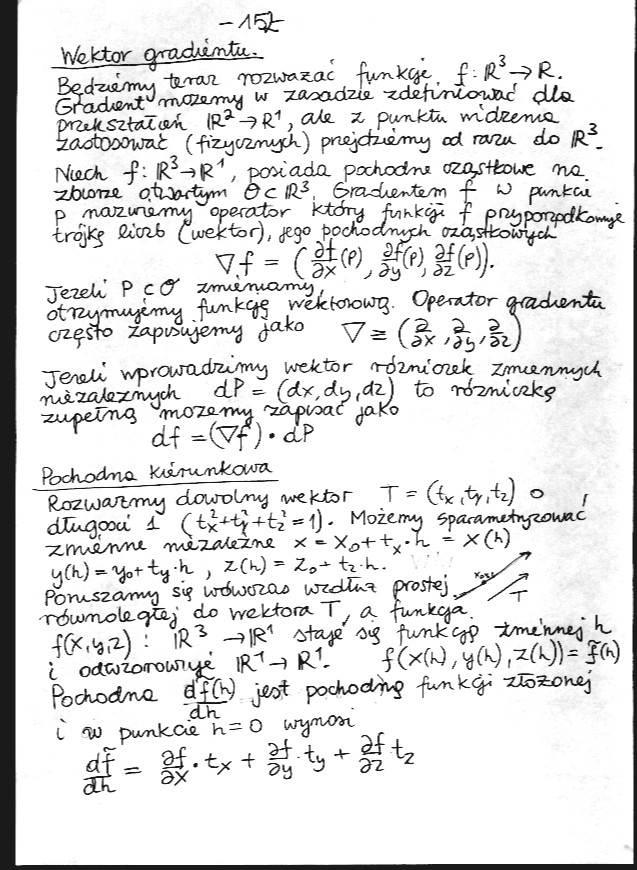 -152-
Wektor gradientu.
Będziemy teraz rozważać funkcje f: ℝ³→R.
Gradient możemy w zasadzie zdefiniować dla
przekształceń ℝ²→ℝ¹, ale z punktu widzenia
zastosować (fizycznych) prejdziemy od razu do ℝ³.
Niech f: ℝ³→ℝ¹, posiada pochodne cząstkowe na
zbiorze otwartym O⊂ℝ³. Gradientem f w punkcie
p nazwiemy operator który funkcji f przyporządkowuje
trójkę liczb (wektor), jego pochodnych cząstkowych
∇f = (∂f/∂x(p), ∂f/∂y(p), ∂f/∂z(p)).
Jeżeli P⊂O zmieniamy,
otrzymujemy funkcję wektorową. Operator gradientu
często zapisujemy jako ∇ ≡ (∂/∂x, ∂/∂y, ∂/∂z)
Jeżeli wprowadzimy wektor różniczek zmiennych
niezależnych dP = (dx, dy, dz) to różniczkę
zupełną możemy zapisać jako
df = (∇f)·dP
Pochodna kierunkowa
Rozważmy dowolny wektor T = (tx, ty, tz) o
długości 1 (tx²+ty²+tz²=1). Możemy sparametryzować
zmienne niezależne x = x₀ + tx·h = x(h)
y(h) = y₀ + ty·h, z(h) = z₀ + tz·h.
Poruszamy się wówczas wzdłuż prostej
równoległej do wektora T, a funkcja T
f(x,y,z) : ℝ³→ℝ¹ staje się funkcją zmiennej h
i odwzorowuje ℝ¹→ℝ¹. f(x(h), y(h), z(h)) = f̃(h)
Pochodna df̃(h)/dh jest pochodną funkcji złożonej
i w punkcie h=0 wynosi
df̃/dh = ∂f/∂x·tx + ∂f/∂y·ty + ∂f/∂z tz